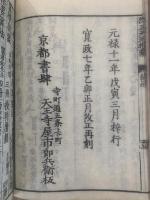 元禄十一年戊寅三月梓行
寛政七年乙卯正月改正再刻
京都書肆
寺町通五条上町
天王寺屋市郎兵衛板